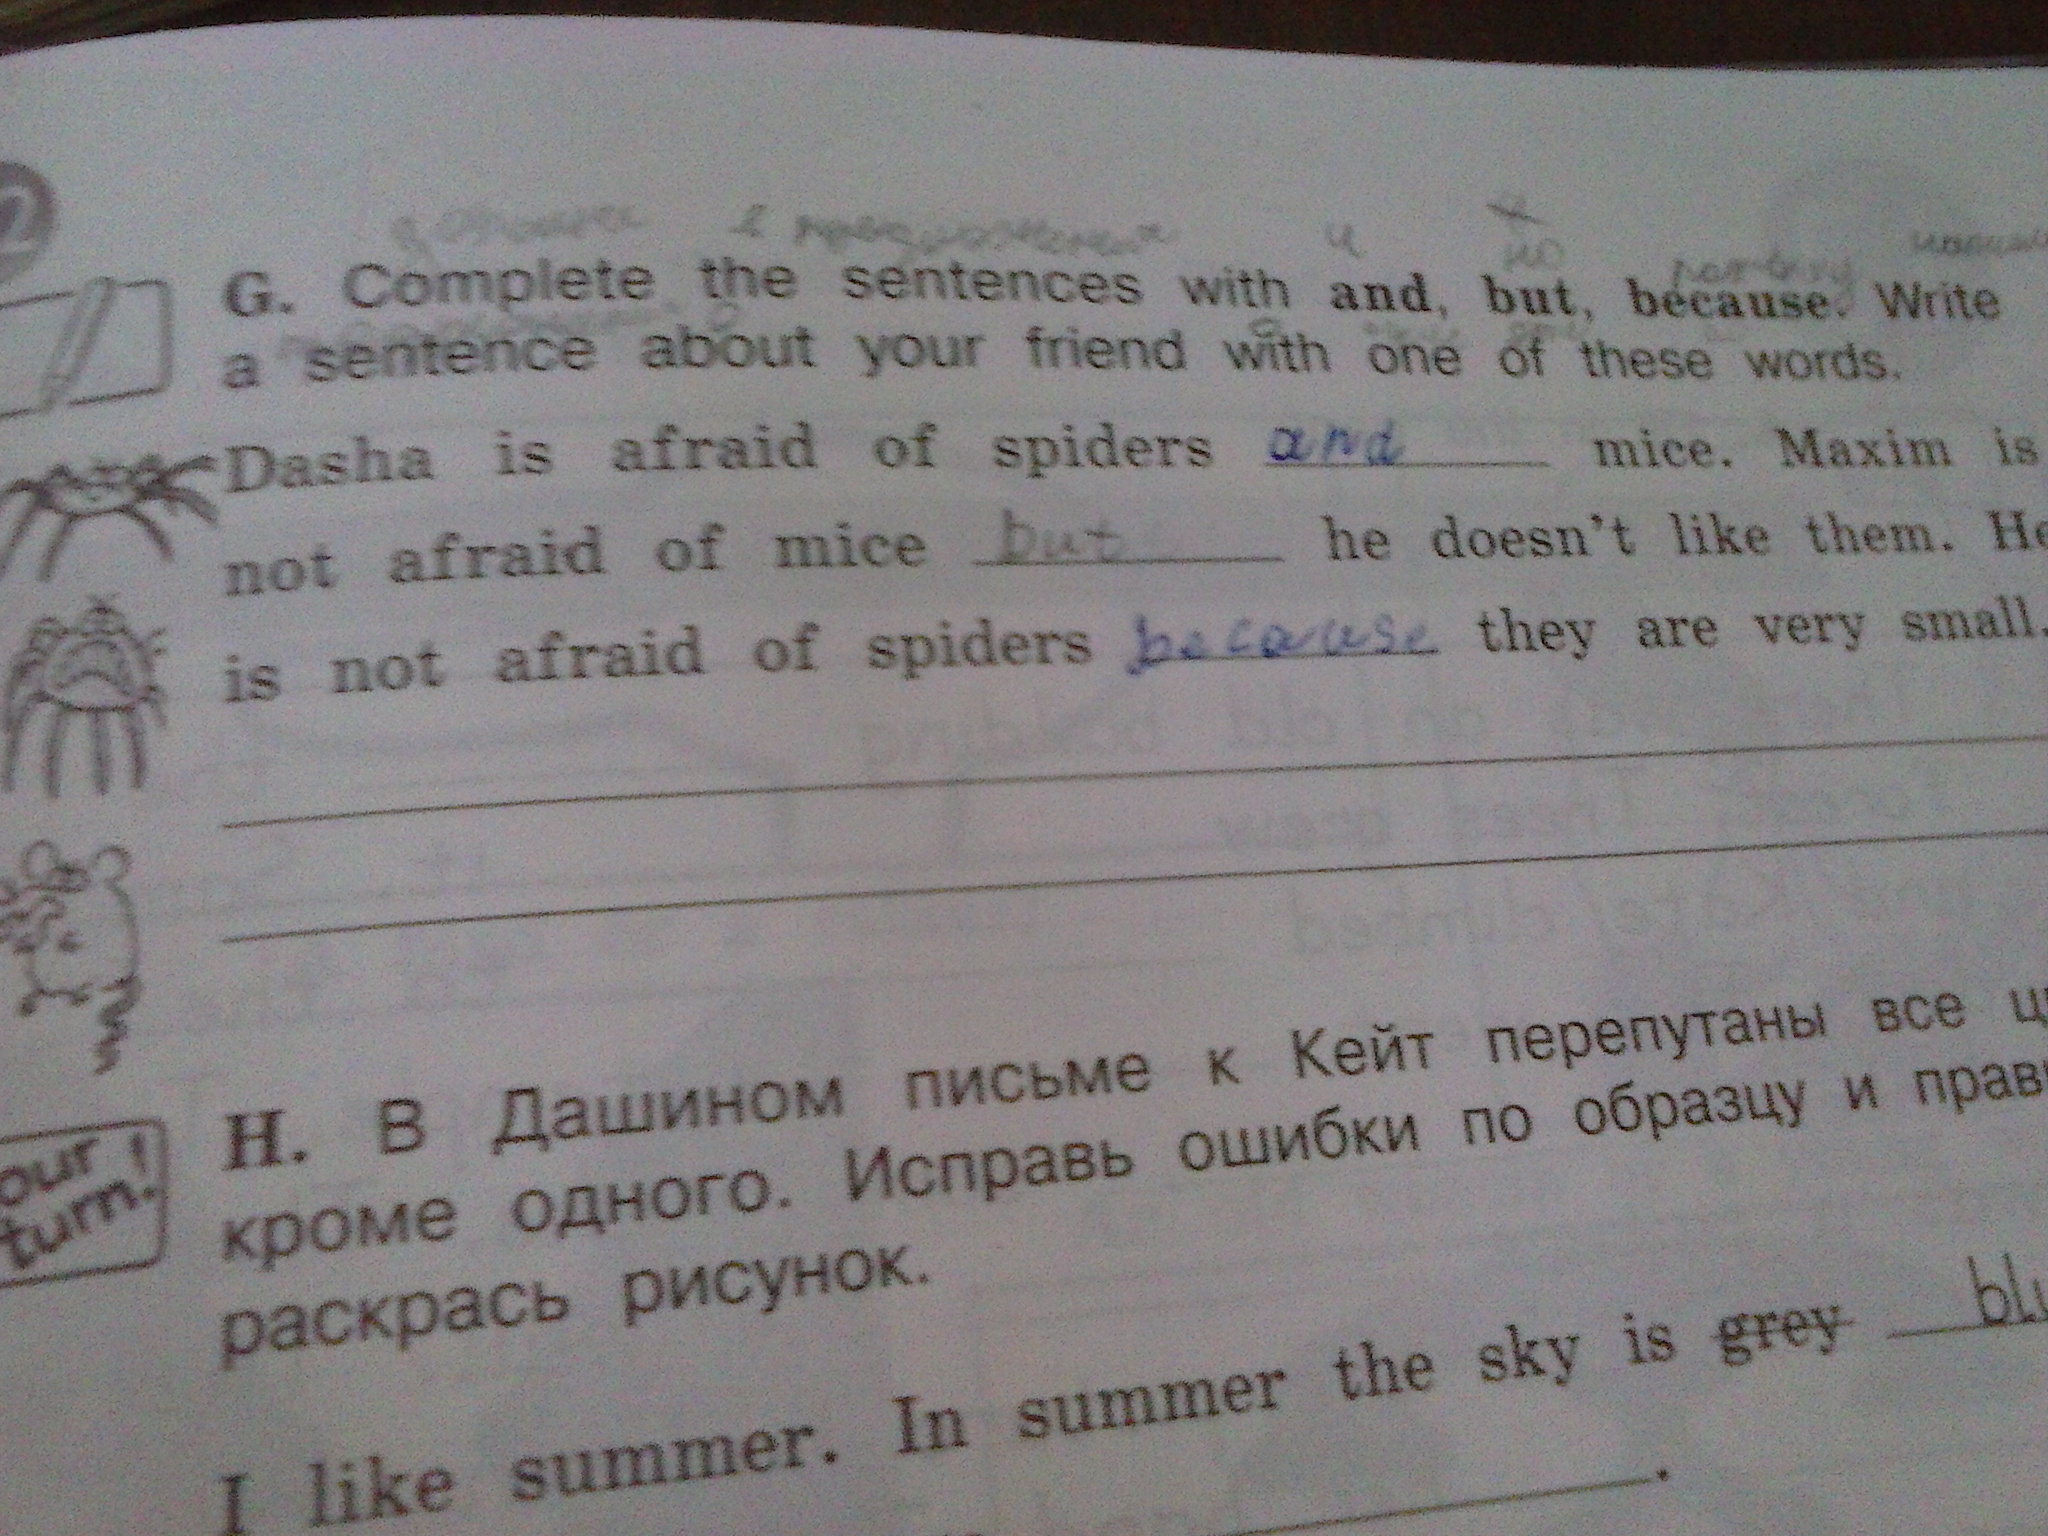 2
и
но
G. Complete the sentences with and, but, because. Write
a sentence about your friend with one of these words.
Dasha is afraid of spiders and mice. Maxim is
not afraid of mice but he doesn't like them. He
is not afraid of spiders because they are very small.
our turn!
H. В Дашином письме к Кейт перепутаны все
кроме одного. Исправь ошибки по образцу и
раскрась рисунок.
I like summer. In summer the sky is grey blu